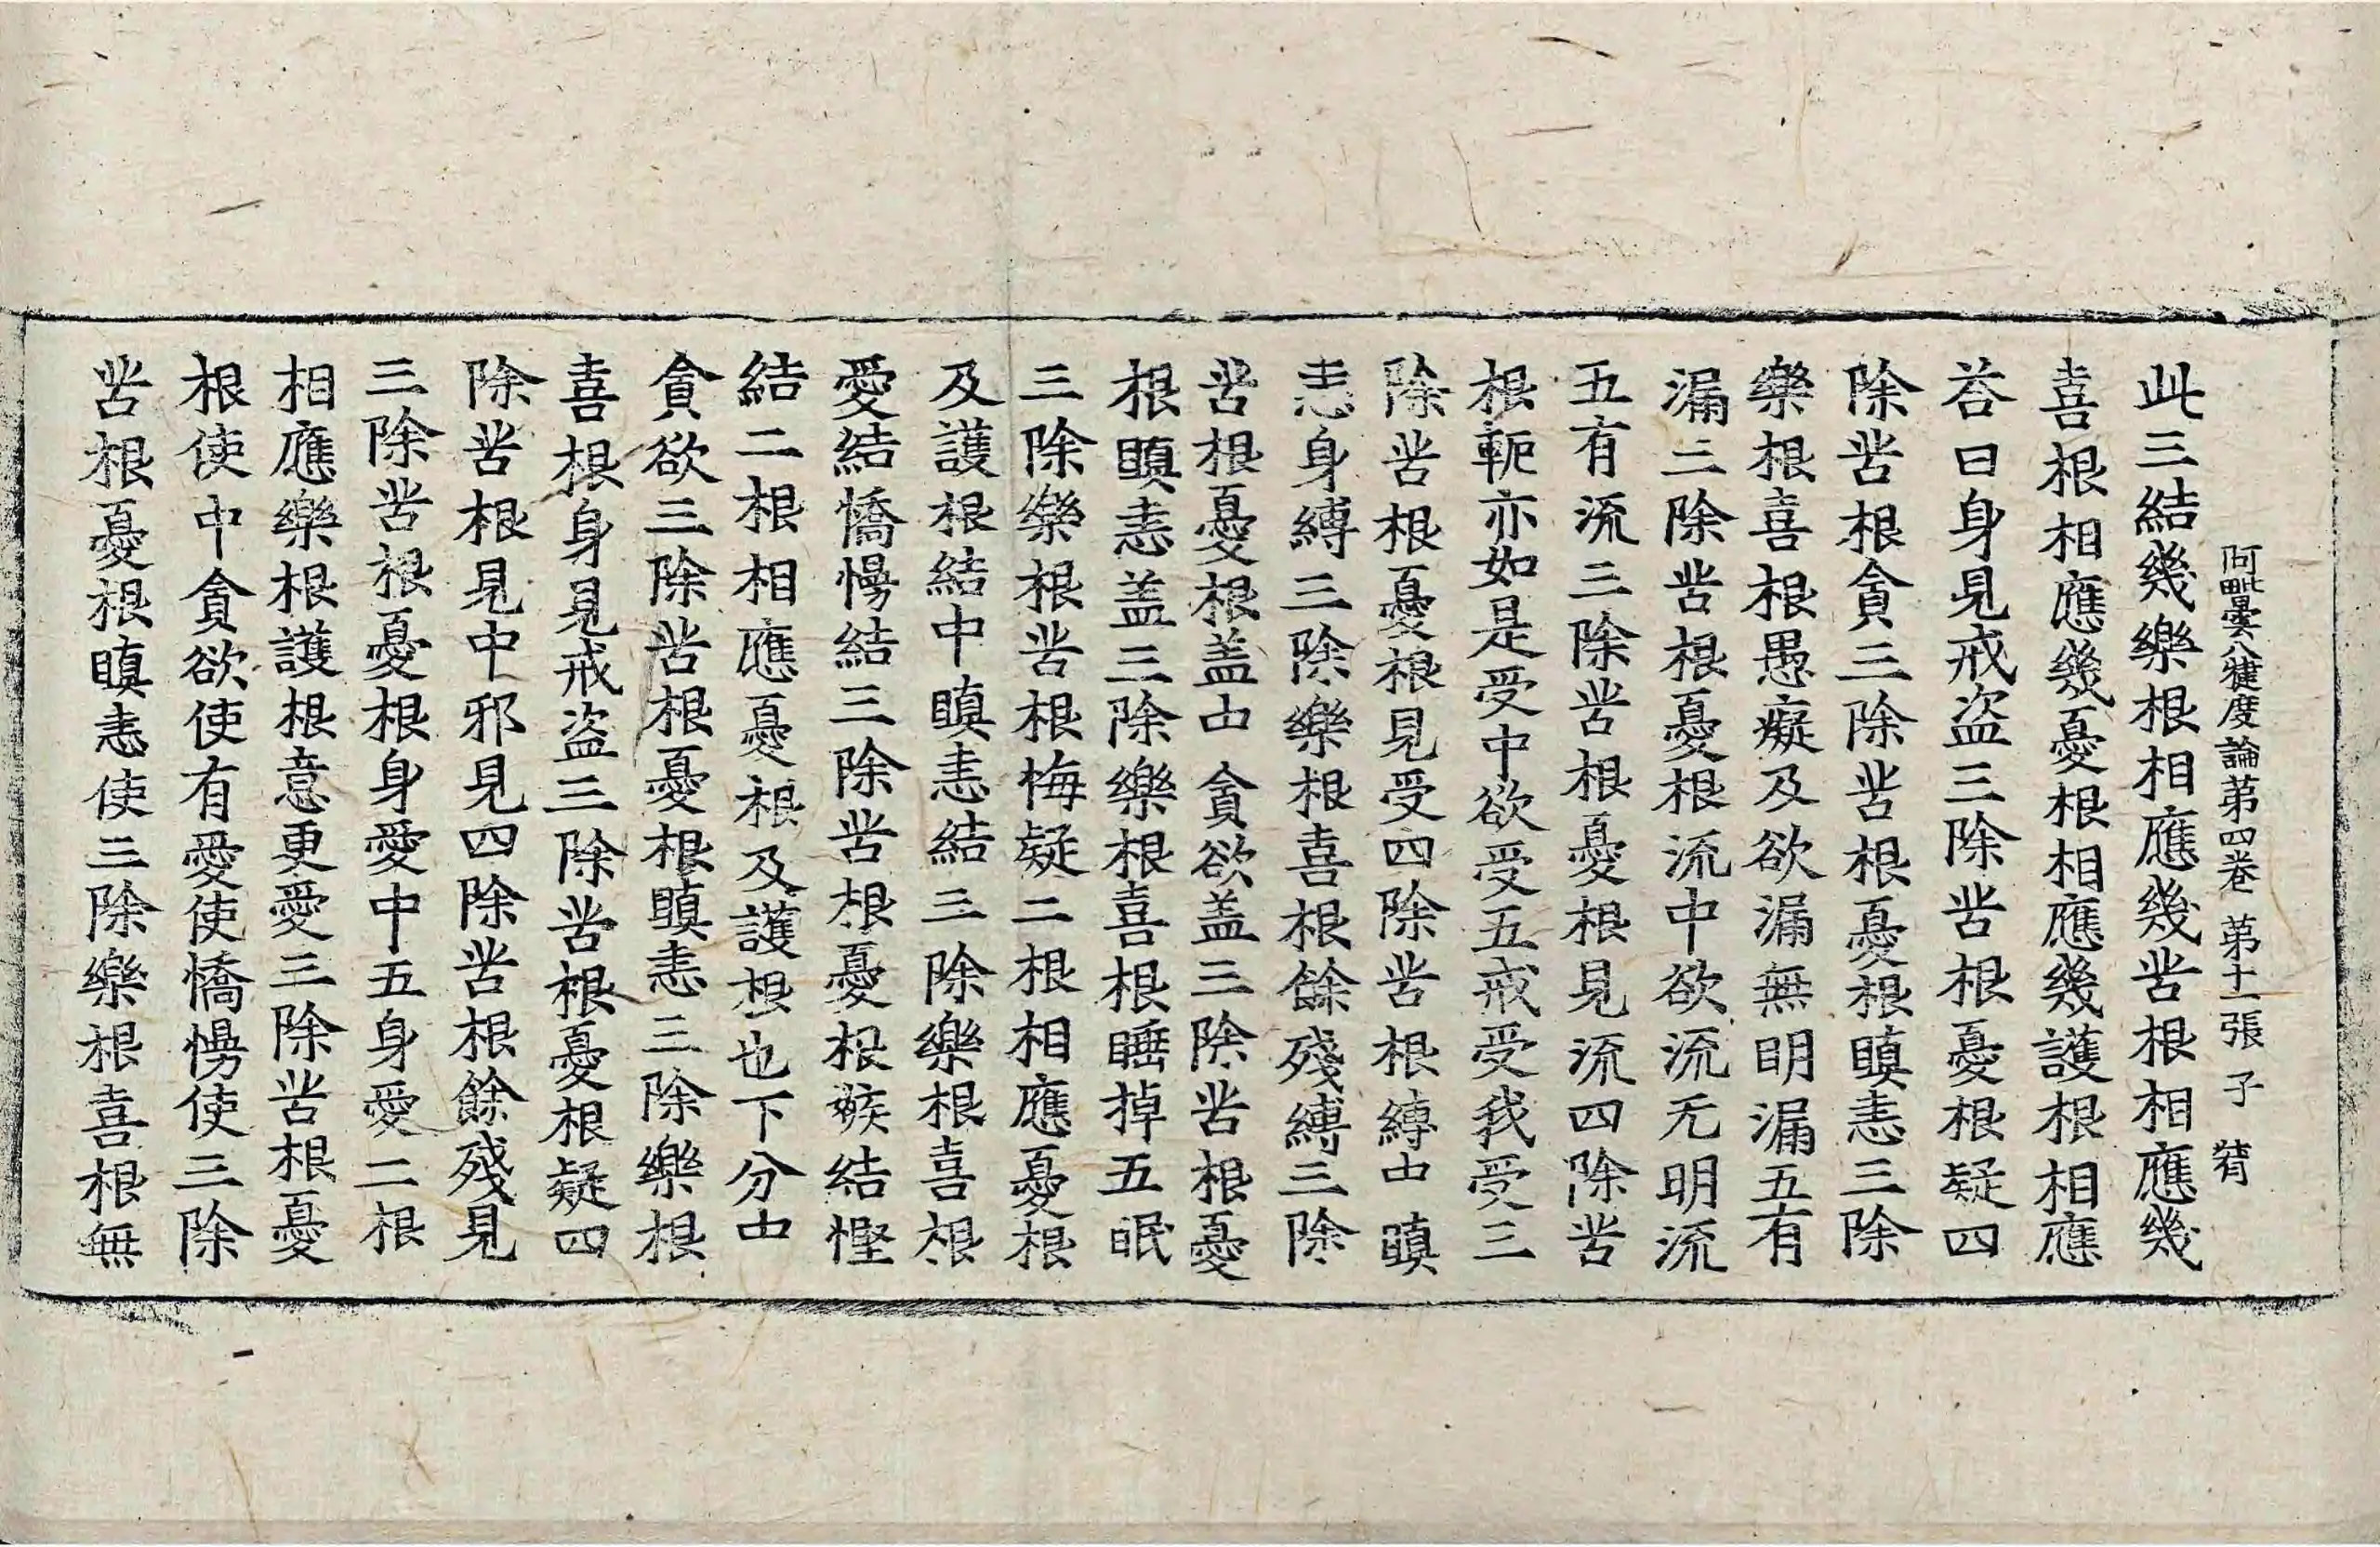 阿毗曇八犍度論第四卷 第十一張 子
此三結幾樂根相應幾苦根相應幾
喜根相應幾憂根相應幾護根相應
荅曰身見戒盗三除苦根憂根疑四
除苦根貪三除苦根憂根瞋恚三除
樂根喜根愚癡及欲漏無明漏五有
漏三除苦根憂根流中欲流无明流
五有流三除苦根憂根見流四除苦
根軛亦如是受中欲受五戒受我受三
除苦根憂根見受四除苦根縛中瞋
恚身縛三除樂根喜根餘殘縛三除
苦根憂根盖中貪欲盖三除苦根憂
根瞋恚盖三除樂根喜根睡掉五眠
三除樂根苦根悔疑二根相應憂根
及護根結中瞋恚結三除樂根喜根
愛結憍慢結三除苦根憂根嫉結慳
結二根相應憂根及護根也下分中
貪欲三除苦根憂根瞋恚三除樂根
喜根身見戒盗三除苦根憂根疑四
除苦根見中邪見四除苦根餘殘見
三除苦根憂根身愛中五身愛二根
相應樂根護根意更愛三除苦根憂
根使中貪欲使有愛使憍慢使三除
苦根憂根瞋恚使三除樂根喜根無